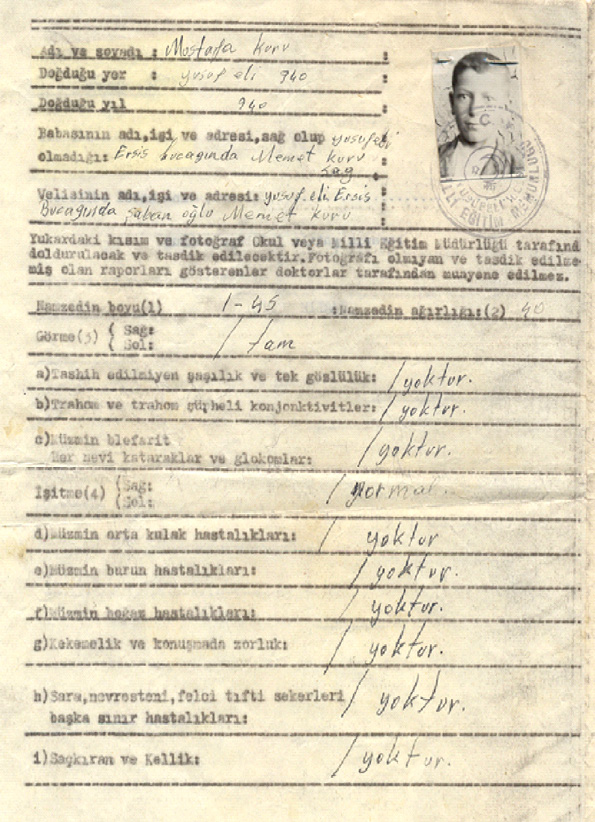 Adı ve soyadı : Mustafa Kuru :
Doğduğu yer : yusufeli 940 :
Doğduğu yıl 940 :
Babasının adı,işi ve adresi,sağ olup yusufeli
olmadığı: Ersis bucagında Memet kuru
sağ :
Velisinin adı,işi ve adresi: yusufeli Ersis
Bucagında şaban oğlu Memet kuru :
Yukardaki kısım ve fotoğraf Okul veya Milli Eğitim Müdürlüğü tarafınd
doldurulacak ve tasdik edilecektir.Fotoğrafı olmıyan ve tasdik edilme-
miş olan raporları gösterenler doktorlar tarafından muayene edilmez.
Namzedin boyu(1) 1-45 :Namzedin ağırlığı:(2) 40
Görme(3) { Sağ:
{ Sol: / tam
a)Tashih edilmiyen şaşılık ve tek gözlülük: / yoktur.
b)Trahom ve trahom şüpheli konjonktivitler: / yoktur.
c)Müzmin blefarit
Her nevi kataraklar ve glokomlar: / yoktur.
İşitme(4) {Sağ:
{Sol: / Normal.
d)Müzmin orta kulak hastalıkları: / yoktur
e)Müzmin burun hastalıkları: / yoktur.
f)Müzmin boğaz hastalıkları: / yoktur.
g)Kekemelik ve konuşmada zorluk: / yoktur.
h)Sara,nevresteni,felci tifti sekerleri / yoktur.
başka sınır hastalıkları:
i)Saçkıran ve Kellik: / yoktur.